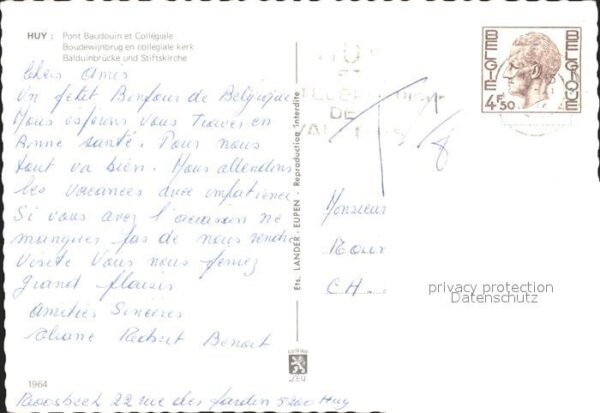 HUY : Pont Baudouin et Collégiale
Boudewijnbrug en collegiale kerk
Balduinbrücke und Stiftskirche
Chers Amis
Un petit Bonjour de Belgique
Nous espérons Vous Trouver en
Bonne santé. Pour nous
tout va bien. Nous attendons
les vacances avec impatience
Si vous avez l'occasion ne
manquez pas de nous rendre
Visite Vous nous ferez
grand plaisir
Amitiés Sincères
Robert Benoit
1964
22 rue des Jardin 5200 Huy
Ets. LANDER - EUPEN - Reproduction interdite
BELGIE BELGIQUE
4F50
ET
DE
T
Monsieur
CH.
privacy protection
Datenschutz